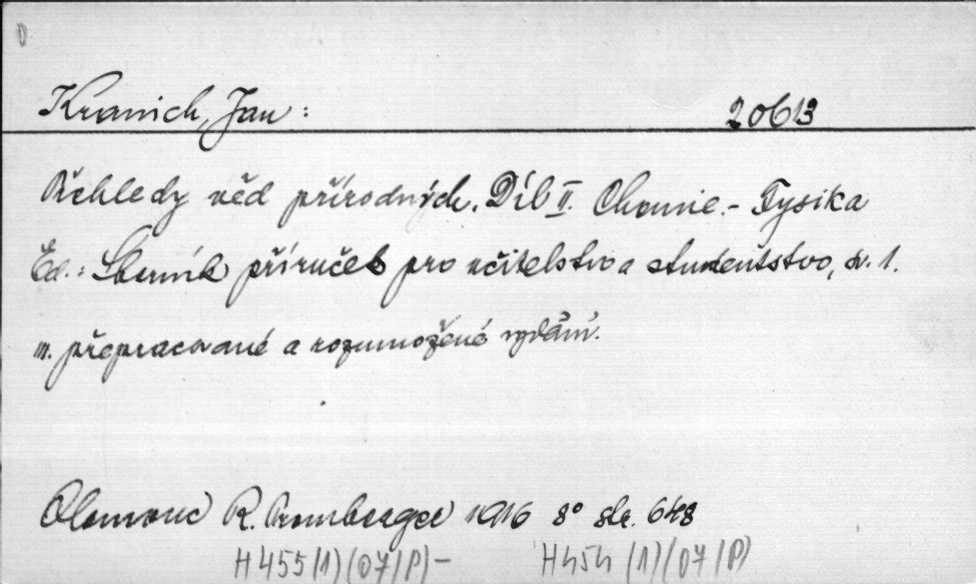 Kranich, Jan: 20613
Přehledy věd přírodných. Díl II. Chemie. - Fysika
Ed.: Sborník příruček pro učitelstvo a studentstvo, sv. 1.
III. přepracované a rozmnožené vydání.
Olomouc R. Promberger 1916 8° str. 648
H455(1)(07/P) - H454(1)(07/P)